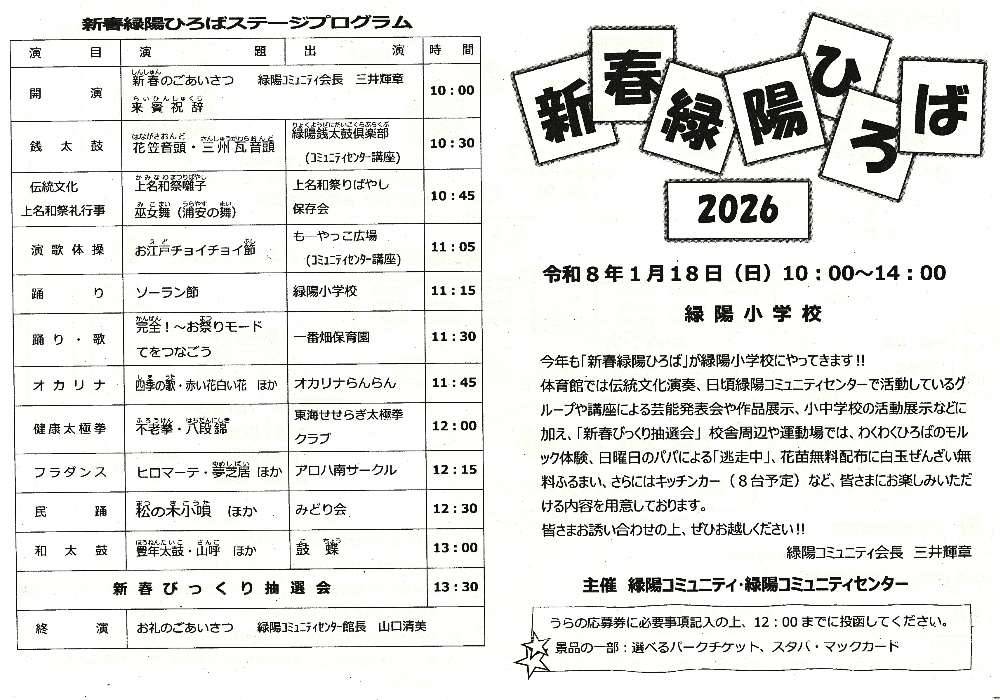 新春緑陽ひろばステージプログラム
演目 演題 出演 時間
開演 新春のごあいさつ 緑陽コミュニティ会長 三井輝章 10:00
来賓祝辞
銭太鼓 花笠音頭・三州瓦音頭 緑陽銭太鼓倶楽部 10:30
(コミュニティセンター講座)
伝統文化 上名和祭囃子 上名和祭りばやし 10:45
上名和祭礼行事 巫女舞(浦安の舞) 保存会
演歌体操 お江戸チョイチョイ節 もーやっこ広場 11:05
(コミュニティセンター講座)
踊り ソーラン節 緑陽小学校 11:15
踊り・歌 完全!~お祭りモード 一番畑保育園 11:30
てをつなごう
オカリナ 四季の歌・赤い花白い花 ほか オカリナらんらん 11:45
健康太極拳 不老拳・八段錦 東海せせらぎ太極拳 12:00
クラブ
フラダンス ヒロマーテ・夢芝居 ほか アロハ南サークル 12:15
民踊 松の木小唄 ほか みどり会 12:30
和太鼓 豊年太鼓・山呼 ほか 鼓蝶 13:00
新春びっくり抽選会 13:30
終演 お礼のごあいさつ 緑陽コミュニティセンター館長 山口清美
新春緑陽ひろば
2026
令和8年1月18日(日)10:00~14:00
緑陽小学校
今年も「新春緑陽ひろば」が緑陽小学校にやってきます!!
体育館では伝統文化演奏、日頃緑陽コミュニティセンターで活動しているグ
ループや講座による芸能発表会や作品展示、小中学校の活動展示などに
加え、「新春びっくり抽選会」 校舎周辺や運動場では、わくわくひろばのモル
ック体験、日曜日のパパによる「逃走中」、花苗無料配布に白玉ぜんざい無
料ふるまい、さらにはキッチンカー(8台予定)など、皆さまにお楽しみいただ
ける内容を用意しております。
皆さまお誘い合わせの上、ぜひお越しください!!
緑陽コミュニティ会長 三井輝章
主催 緑陽コミュニティ・緑陽コミュニティセンター
うらの応募券に必要事項記入の上、12:00までに投函してください。
景品の一部:選べるパークチケット、スタバ・マックカード